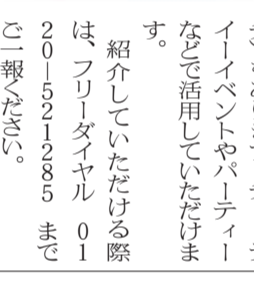 イーイベントやパーティー
などで活用していただけま
す。
紹介していただける際
は、フリーダイヤル　01
20―521285　まで
ご一報ください。